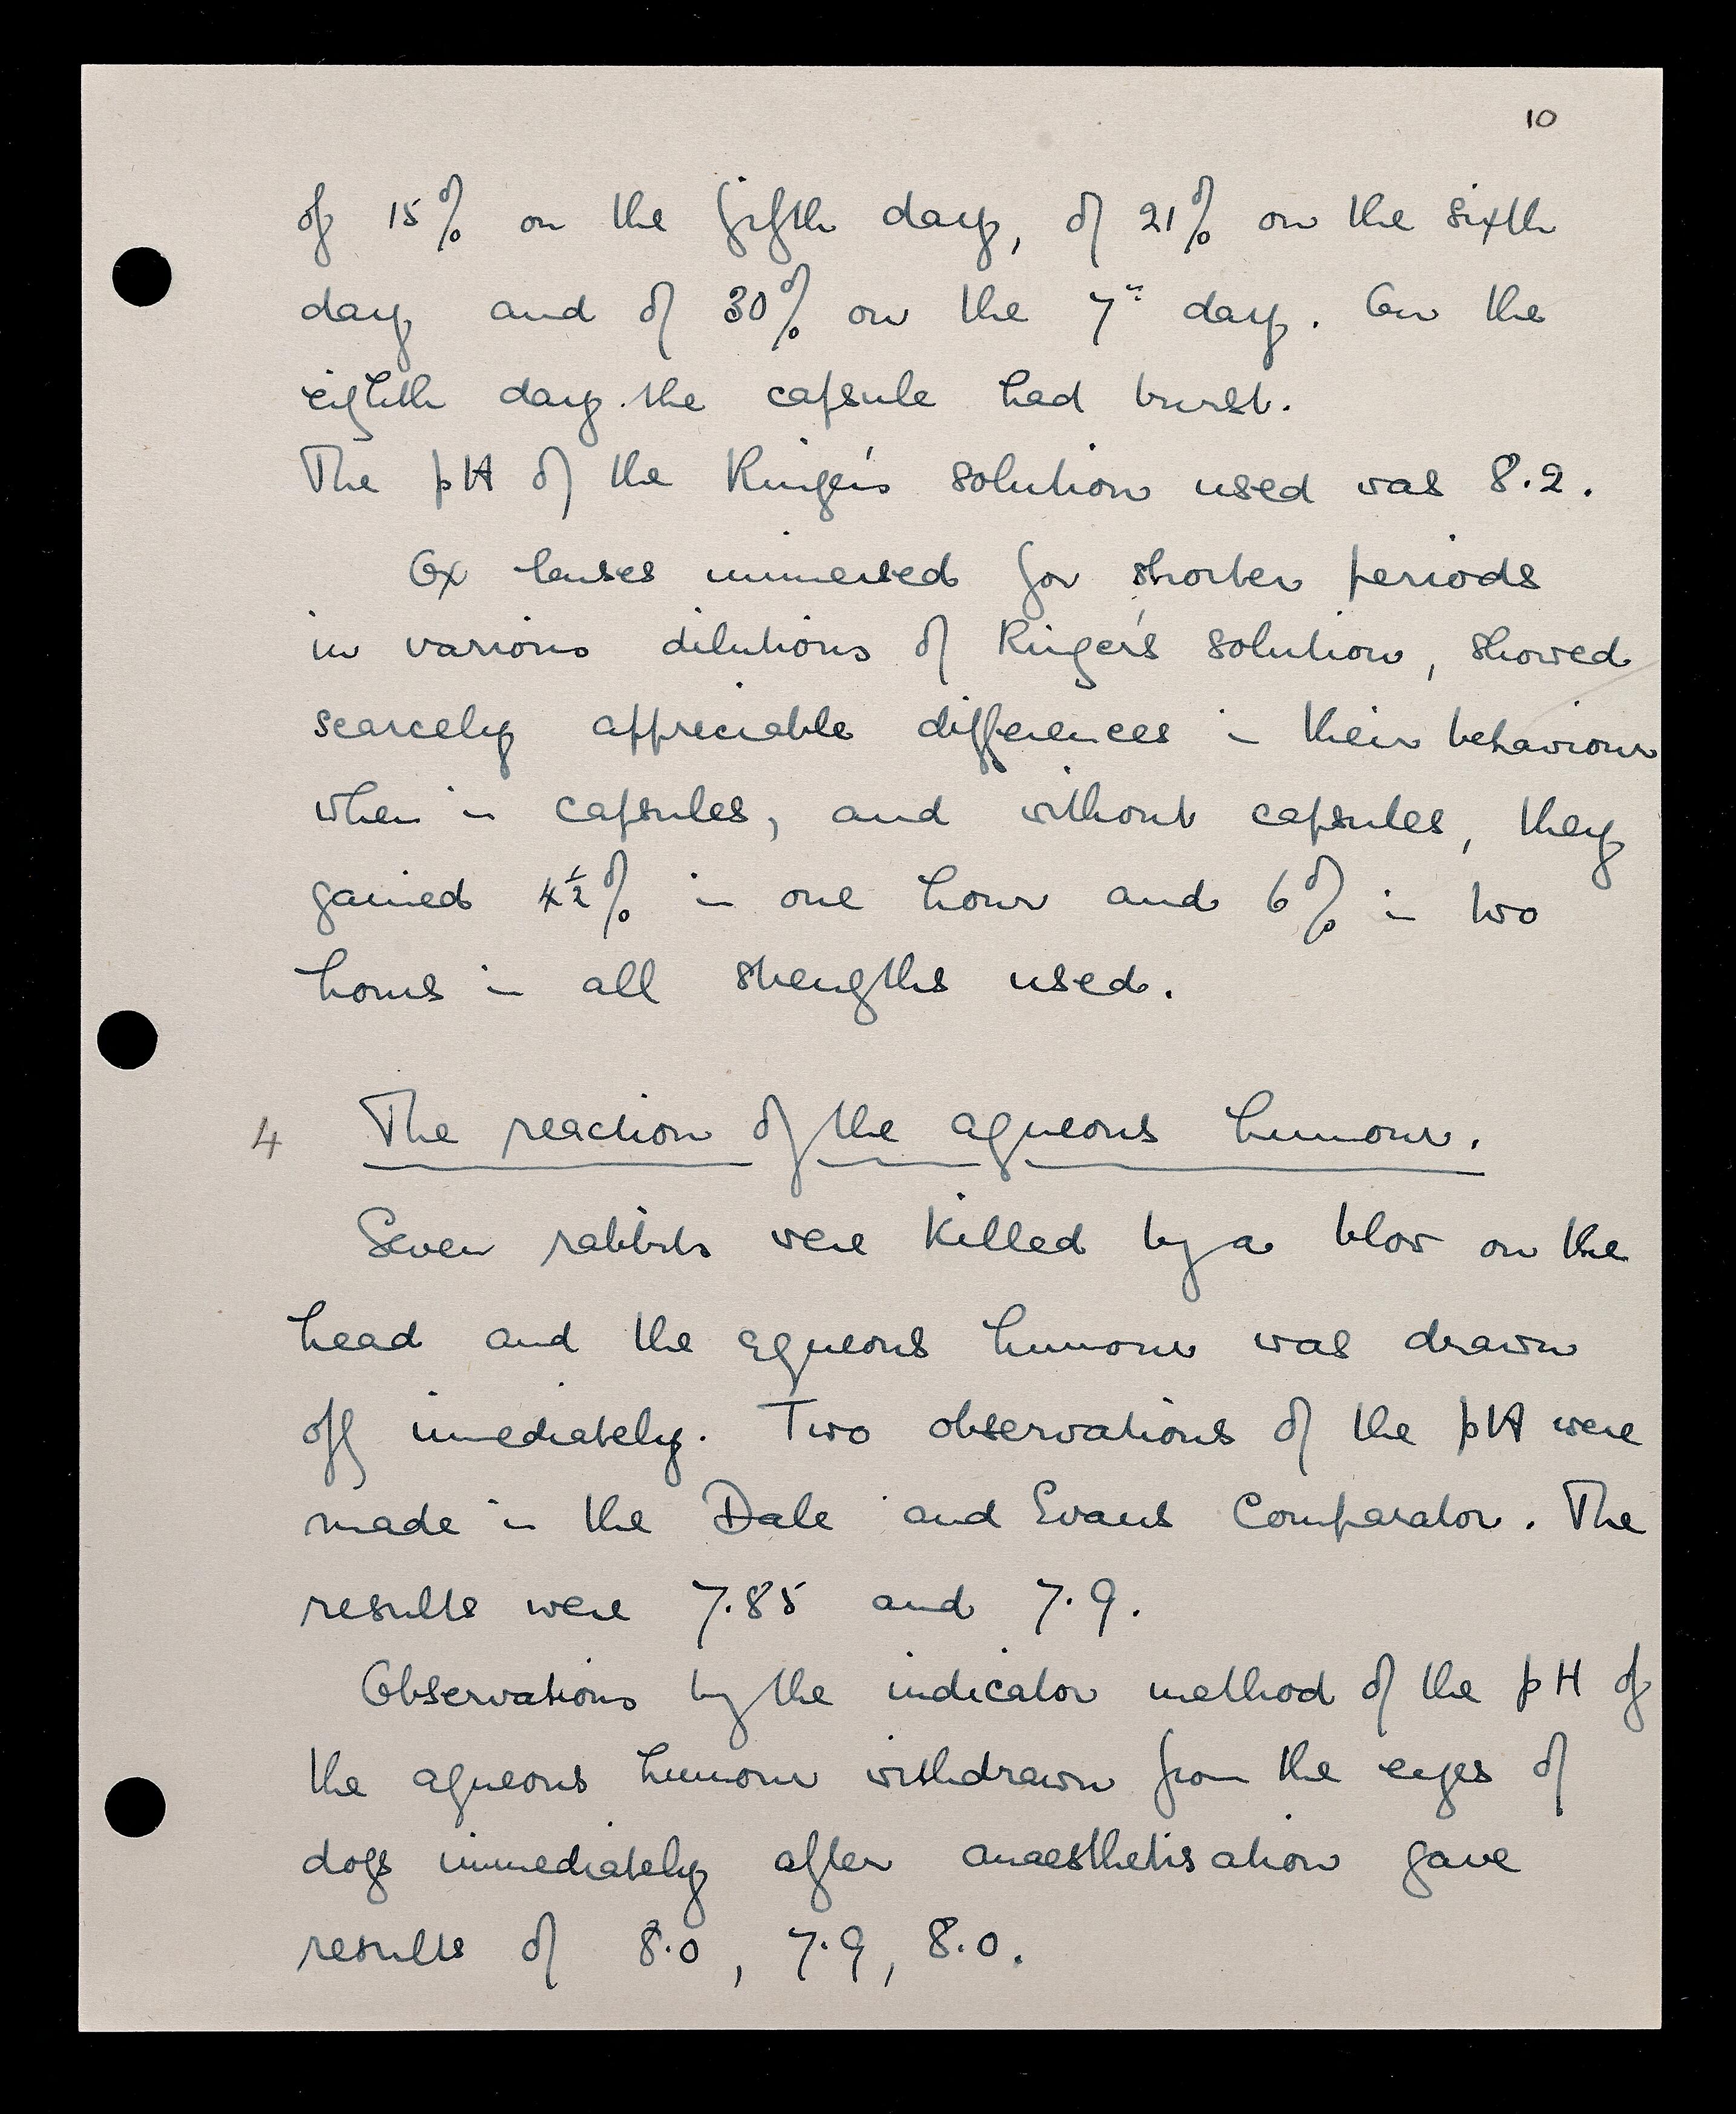 10
of 15% on the fifth day, of 21% on the sixth
day and of 30% on the 7th day. On the
eighth day the capsule had burst.
The pH of the Ringer's solution used was 8.2.
Ox lenses immersed for shorter periods
in various dilutions of Ringer's solution, showed
scarcely appreciable differences in their behaviour
when in capsules, and without capsules, they
gained 4½% in one hour and 6% in two
hours in all strengths used.
4 The reaction of the aqueous humour.
Seven rabbits were killed by a blow on the
head and the aqueous humour was drawn
off immediately. Two observations of the pH were
made in the Dale and Evans Comparator. The
results were 7.85 and 7.9.
Observations by the indicator method of the pH of
the aqueous humour withdrawn from the eyes of
dogs immediately after anaesthetisation gave
results of 8.0, 7.9, 8.0.